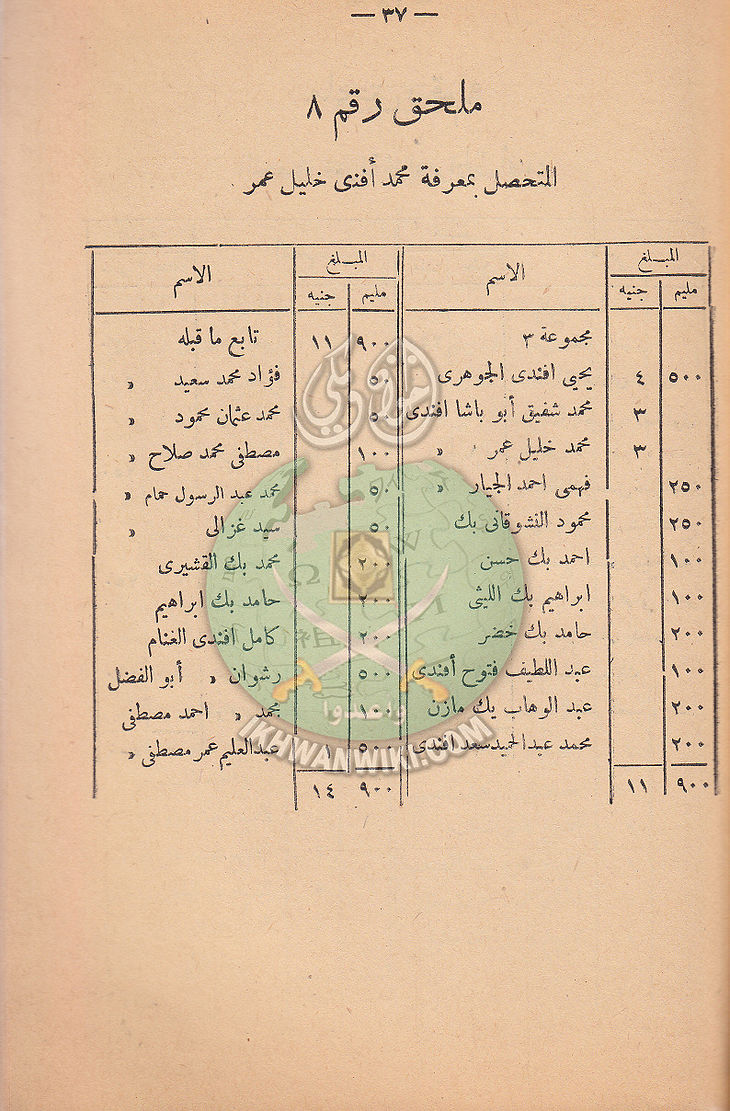 — ٣٧ —
ملحق رقم ٨
المتحصل بمعرفة محمد أفندى خليل عمر
المبلغ الاسم المبلغ الاسم
مليم جنيه مليم جنيه
مجموعة ٣ ٩٠٠ ١١ تابع ما قبله
٥٠٠ ٤ يحيى افندى الجوهرى ٥٠ فؤاد محمد سعيد »
٣ محمد شفيق أبو باشا افندى ٥٠ محمد عثمان محمود »
٣ محمد خليل عمر » ١٠٠ مصطفى محمد صلاح »
٢٥٠ فهمى احمد الجيار » ٥٠ محمد عبد الرسول حمام »
٢٥٠ محمود النشوقانى بك ٥٠ سيد غزالى »
١٠٠ احمد بك حسن ٢٠٠ محمد بك القشيرى
١٠٠ ابراهيم بك الليثى ٢٠٠ حامد بك ابراهيم
٢٠٠ حامد بك خضر ٢٠٠ كامل افندى الغنام
١٠٠ عبد اللطيف فتوح أفندى ٥٠٠ رشوان » أبو الفضل
٢٠٠ عبد الوهاب بك مازن ١٠٠ محمد » احمد مصطفى
٢٠٠ محمد عبد الحميد سعد افندى ٥٠٠ ١ عبد العليم عمر مصطفى »
٩٠٠ ١١ ٩٠٠ ١٤
وأعدوا
IKHWANWIKI.COM